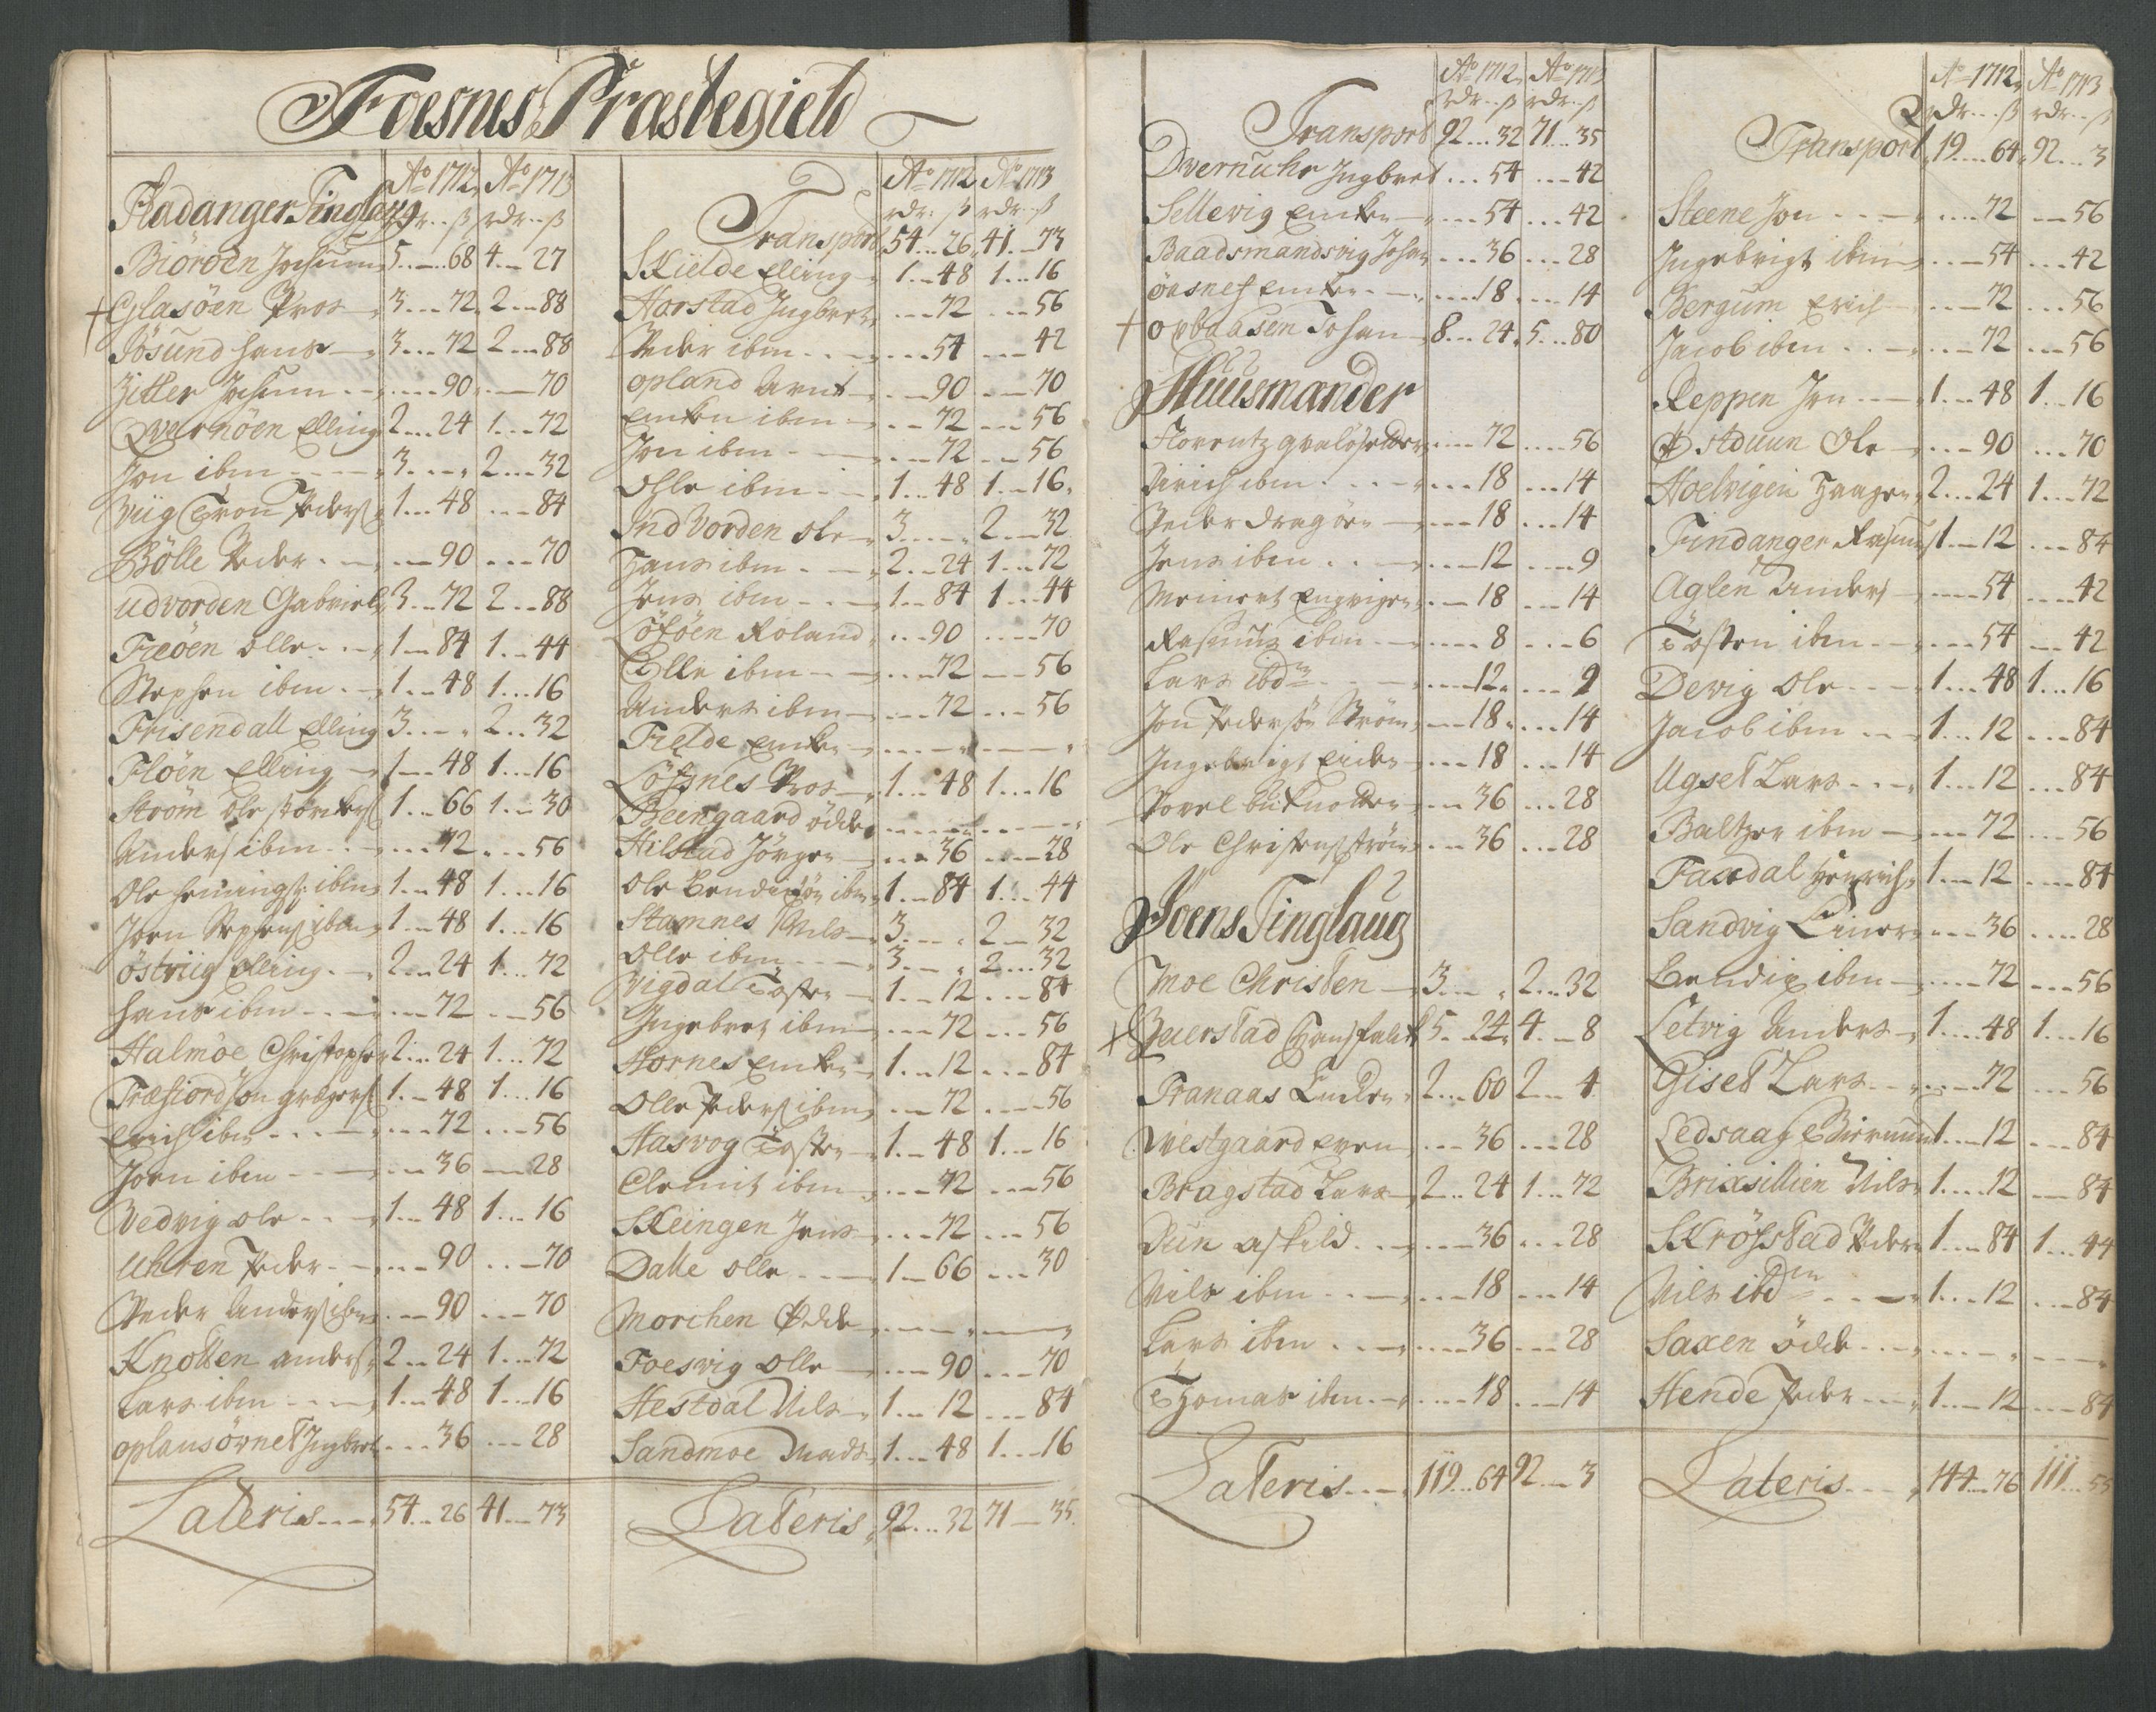 Foesnes Præstegield
Fladanger Tinglaug Ao 1712 Ao 1713
rdr ß rdr ß
Biöröen Jochum 5 68 4 27
+ Glasöen Pros 3 72 2 88
Jösund Hans 3 72 2 88
Zitter Jochum 90 70
Qvernöen Elling 2 24 1 72
Jon ibm 3 2 32
Viig Tron Peders 1 48 84
Bölle Peder 90 70
Udvorden Gabriel 3 72 2 88
Fieöen Olle 1 84 1 44
Stephen ibm 1 48 1 16
Frisendall Elling 3 2 32
Flöen Elling 1 48 1 16
Ström Ole 1 66 1 30
Anders ibm 72 56
Ole Hemings ibm 1 48 1 16
Joen Stephens ibm 1 48 1 16
Östviig Elling 2 24 1 72
Hans ibm 72 56
Halmöe Christopher 2 24 1 72
Træfiord Jon gregers 1 48 1 16
Erich ibm 72 56
Joen ibm 36 28
Vedvig Ole 1 48 1 16
Uhren Peder 90 70
Peder Anders ibm 90 70
Knotten Anders 2 24 1 72
Lars ibm 1 48 1 16
Oplansörnet Ingbret 36 28
Lateris 54 26 41 73
Ao 1712 Ao 1713
rdr ß rdr ß
Transport 54 26 41 73
Skielde Elling 1 48 1 16
Harstad Ingbret 72 56
Peder ibm 54 42
Opland Arnt 90 70
Enken ibm 72 56
Jon ibm 72 56
Ohle ibm 1 48 1 16
Indvorden Ole 3 2 32
Hans ibm 2 24 1 72
Jens ibm 1 84 1 44
Löföen Roland 90 70
Olle ibm 72 56
Anders ibm 72 56
Fielde Enken
Löfsnes Pros 1 48 1 16
Beengaard öde
Hilstad Jörgen 36 28
Ole Bendixön ibm 1 84 1 44
Stamnes Nils 3 2 32
Olle ibm 3 2 32
Vigdal Tosten 1 12 84
Ingebret ibm 72 56
Hornes Enken 1 12 84
Olle Peders ibm 72 56
Hasvog Tosten 1 48 1 16
Clemit ibm 72 56
Skeingen Jens 72 56
Dalle Olle 1 66 30
Morchen Øde
Foesvig Olle 90 70
Hestdal Nils 1 12 84
Sandmoe Mads 1 48 1 16
Lateris 92 32 71 35
Ao 1712 Ao 1713
rdr ß rdr ß
Transport 92 32 71 35
Dvernuhr Ingbret 54 42
Sellevig Enken 54 42
Baadsmandsvig Johan 36 28
Öasnes Enken 18 14
+ Opbaasen Johan 8 24 5 80
Huusmænder
Florentz qvalösetter 72 56
Dirich ibm 18 14
Peder dragöen 18 14
Jens ibm 12 9
Meinert Engvigen 18 14
Rasmus ibm 8 6
Lars ibdm 12 9
Jon Pedersön Ström 18 14
Ingebrigt Eiden 18 14
Povel Buknotten 36 28
Ole Christens ström 36 28
Föens Tinglaug
Moe Christen 3 2 32
+ Beierstad Hans falck 5 24 4 8
Tranaas Endre 2 60 2 4
Westgaard Even 36 28
Bragstad Lars 2 24 1 72
Duun Askild 36 28
Nils ibm 18 14
Lars ibm 36 28
Thomas ibm 18 14
Lateris 119 64 92 3
Ao 1712 Ao 1713
rdr ß rdr ß
Transport 19 64 92 3
Steene Jon 72 56
Ingebrigt ibm 54 42
Bergum Erich 72 56
Jacob ibm 72 56
Reppen Jon 1 48 1 16
Østduun Ole 90 70
Hoelvigen Haagen 2 24 1 72
Findanger Rasmus 1 12 84
Aglen Anders 54 42
Tosten ibm 54 42
Devig Ole 1 48 1 16
Jacob ibm 1 12 84
Ugset Lars 1 12 84
Baltzer ibm 72 56
Faxdal Henrich 1 12 84
Sandvig Einer 36 28
Bendix ibm 72 56
Letvig Anders 1 48 1 16
Giset Lars 72 56
Ledsaag 1 12 84
Brixsillien Nils 1 12 84
Skröfstad Peder 1 84 1 44
Nils ibdm 1 12 84
Saxen öde
Hende Peder 1 12 84
Lateris 144 76 111 55